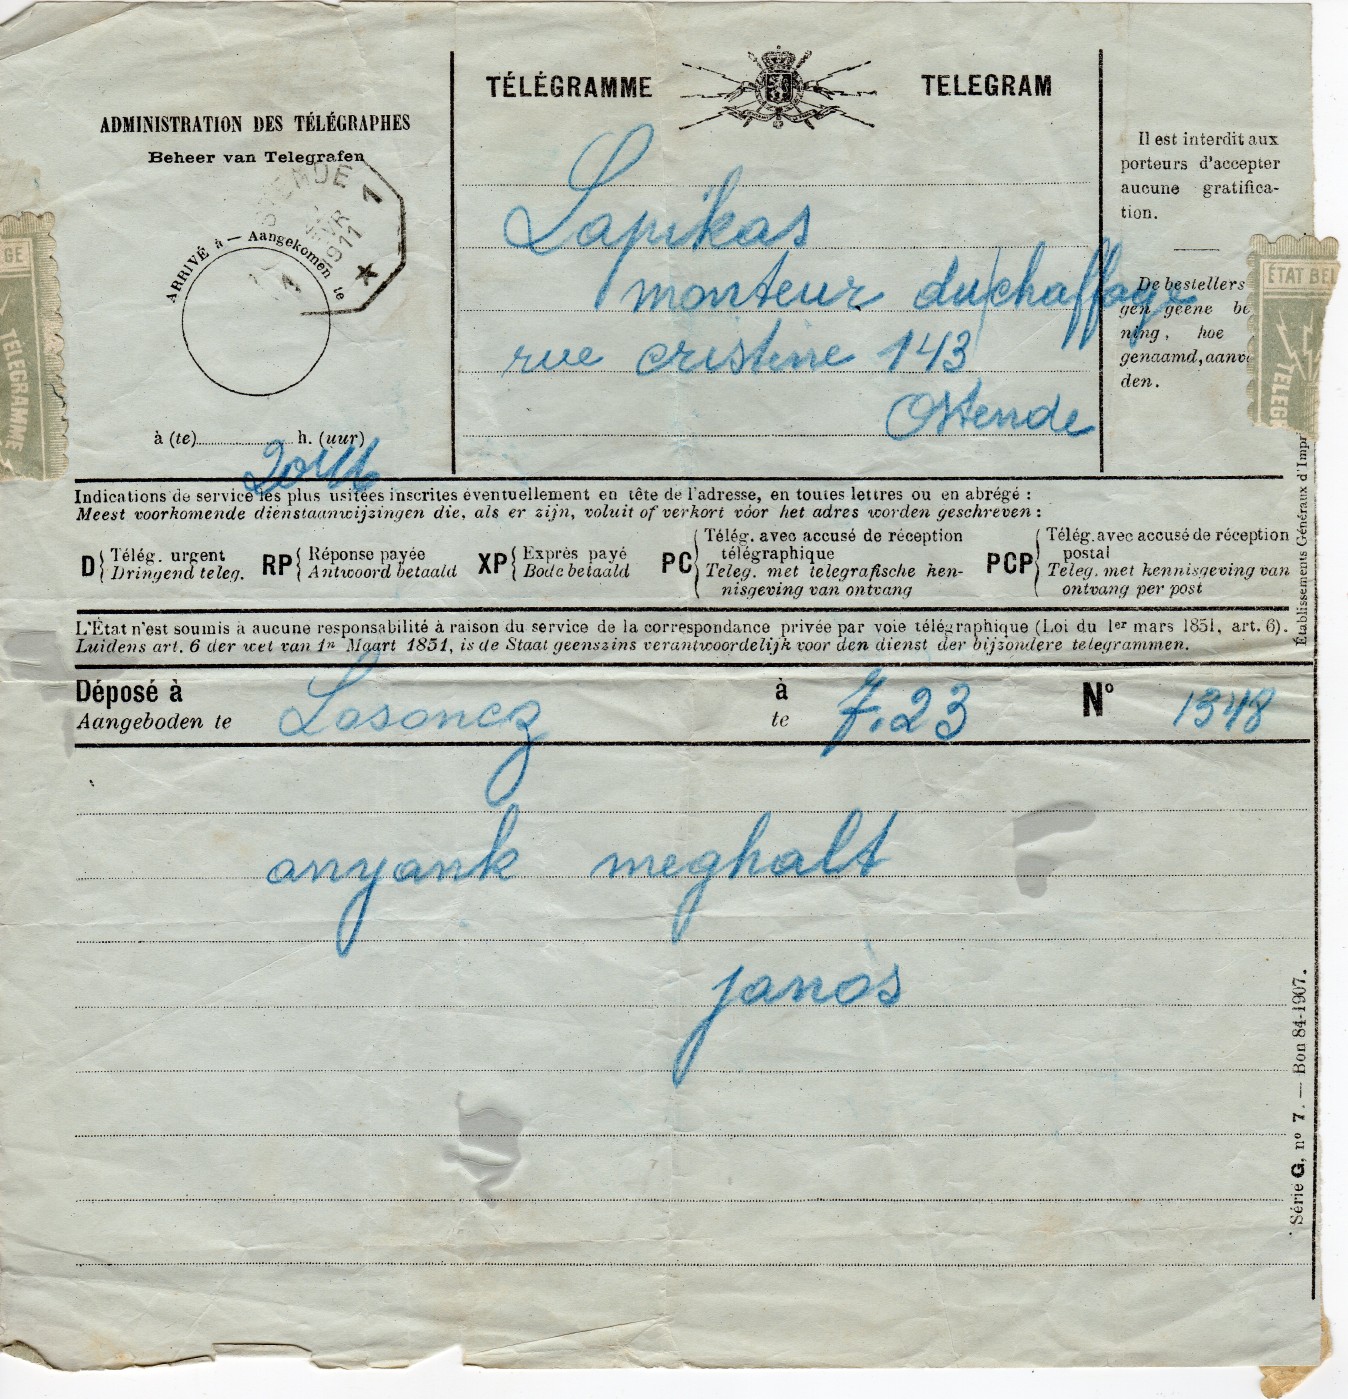 TÉLÉGRAMME
TELEGRAM
ADMINISTRATION DES TÉLÉGRAPHES
Beheer van Telegrafen
ARRIVÉ à — Aangekomen te
1
1911
à (te) h. (uur)
Lapikas
monteur du chaffage
rue cristine 143
Ostende
Il est interdit aux
porteurs d'accepter
aucune gratifica-
tion.
De bestellers
gen geene be
ning, hoe
genaamd, aanv
den.
GE
TELEGRAMME
ÉTAT BEL
TELEG
Indications de service les plus usitées inscrites éventuellement en tête de l'adresse, en toutes lettres ou en abrégé :
Meest voorkomende dienstaanwijzingen die, als er zijn, voluit of verkort vóor het adres worden geschreven :
D Télég. urgent
Dringend teleg.
RP Réponse payée
Antwoord betaald
XP Exprès payé
Bode betaald
PC Télég. avec accusé de réception
télégraphique
Teleg. met telegrafische ken-
nisgeving van ontvang
PCP Télég. avec accusé de réception
postal
Teleg. met kennisgeving van
ontvang per post
L'État n'est soumis à aucune responsabilité à raison du service de la correspondance privée par voie télégraphique (Loi du 1er mars 1851, art. 6).
Luidens art. 6 der wet van 1n Maart 1851, is de Staat geenszins verantwoordelijk voor den dienst der bijzondere telegrammen.
Déposé à Losoncz à 7.23 N° 1348
Aangeboden te te
anyank meghalt
janos
Établissements Généraux d'Impr
Série G, n° 7. — Bon 84-1907.